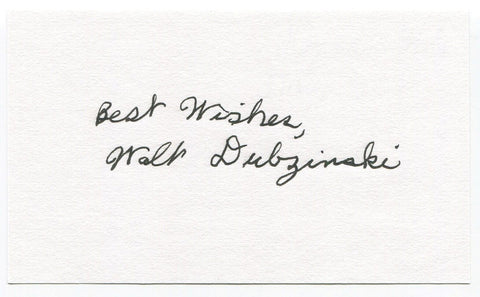 Best Wishes,
Walt Dubzinski